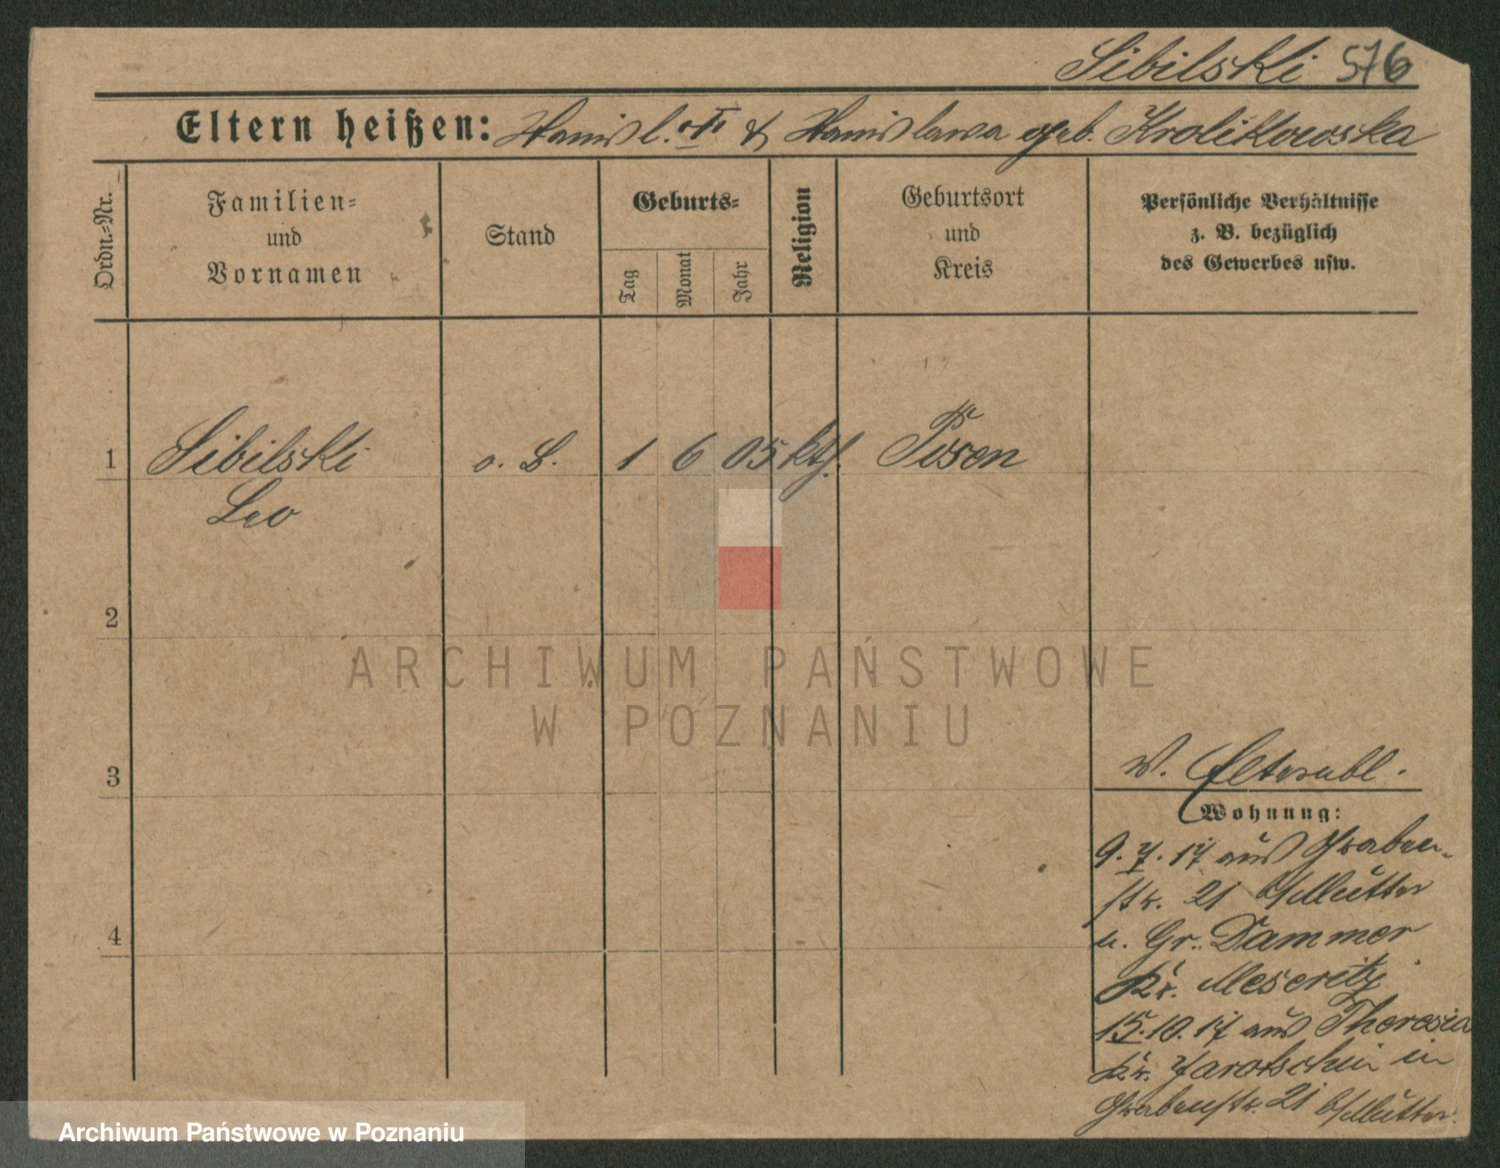 Sibilski 576
Eltern heißen: Stanisl. & Stanislawa geb. Krolikowska
Ordn.-Nr.
Familien- und Vornamen
Stand
Geburts-
Tag
Monat
Jahr
Religion
Geburtsort und Kreis
Persönliche Verhältnisse
z. B. bezüglich
des Gewerbes usw.
1 Sibilski o. B. 1 6 05 kth. Posen
Leo
2
3
4
ARCHIWUM PAŃSTWOWE
W POZNANIU
Wohnung:
9.7.17 aus Graben-
str. 21 b/Mutter
n. Gr. Dammer
Kr. Meseritz
15.10.17 aus Theresia
Kr. Jarotschin in
Grabenstr. 21 b/Mutter.
Archiwum Państwowe w Poznaniu